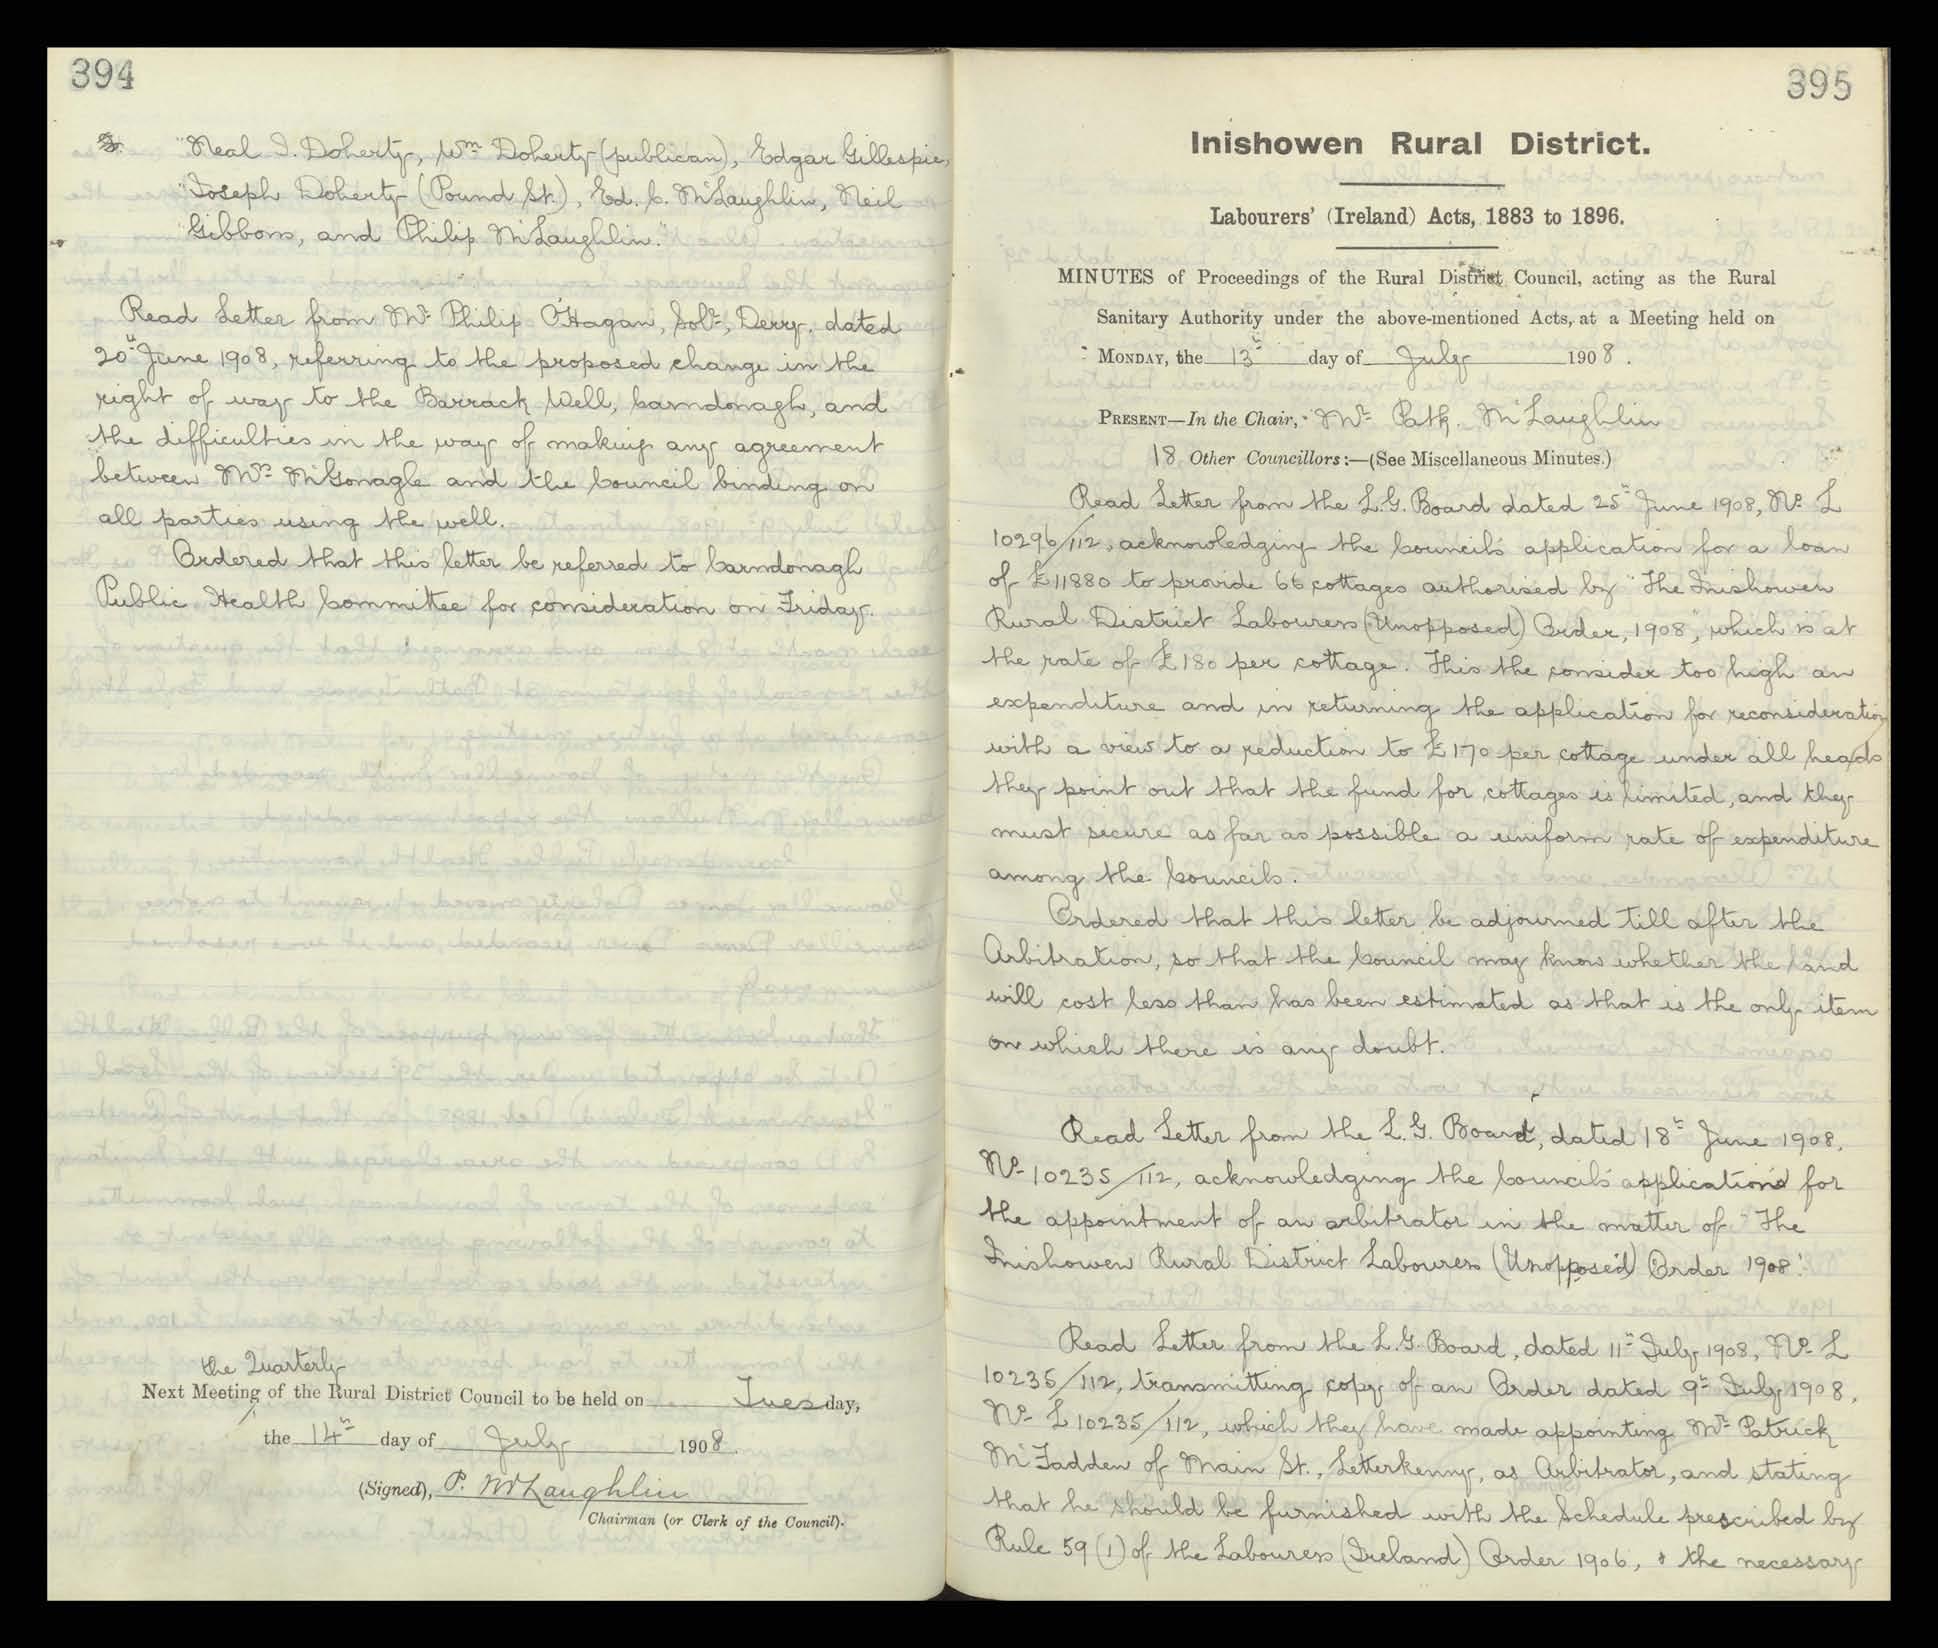 394
"Neal I. Doherty, Wm Doherty (publican), Edgar Gillespie,
"Joseph Doherty (Pound St.), Ed. C. McLaughlin, Neil
"Gibbons, and Philip McLaughlin."
Read Letter from Mr Philip O'Hagan, Solr, Derry, dated
20th June 1908, referring to the proposed change in the
right of way to the Barrack Well, Carndonagh, and
the difficulties in the way of making any agreement
between Mrs McGonagle and the Council binding on
all parties using the well.
Ordered that this letter be referred to Carndonagh
Public Health Committee for consideration on Friday.
the Quarterly
Next Meeting of the Rural District Council to be held on Tuesday,
the 14th day of July 1908.
(Signed), P. McLaughlin
Chairman (or Clerk of the Council).
395
Inishowen Rural District.
Labourers' (Ireland) Acts, 1883 to 1896.
MINUTES of Proceedings of the Rural District Council, acting as the Rural
Sanitary Authority under the above-mentioned Acts, at a Meeting held on
MONDAY, the 13th day of July 1908.
PRESENT—In the Chair, Mr Patk. McLaughlin
18 Other Councillors:—(See Miscellaneous Minutes.)
Read Letter from the L.G. Board dated 25th June 1908, No L
10296/112, acknowledging the Council's application for a loan
of £11880 to provide 66 cottages authorised by "The Inishowen
Rural District Labourers (Unopposed) Order, 1908", which is at
the rate of £180 per cottage. This the consider too high an
expenditure and in returning the application for reconsideration
with a view to a reduction to £170 per cottage under all heads
they point out that the fund for cottages is limited, and they
must secure as far as possible a uniform rate of expenditure
among the Councils.
Ordered that this letter be adjourned till after the
Arbitration, so that the Council may know whether the land
will cost less than has been estimated as that is the only item
on which there is any doubt.
Read Letter from the L.G. Board, dated 18th June 1908.
No 10235/112, acknowledging the Council's application for
the appointment of an arbitrator in the matter of "The
Inishowen Rural District Labourers (Unopposed) Order 1908".
Read Letter from the L.G. Board, dated 11th July 1908, No L
10235/112, transmitting copy of an Order dated 9th July 1908,
No L 10235/112, which they have made appointing Mr Patrick
McFadden of Main St., Letterkenny, as Arbitrator, and stating
that he should be furnished with the Schedule prescribed by
Rule 59 (1) of the Labourers (Ireland) Order 1906, & the necessary